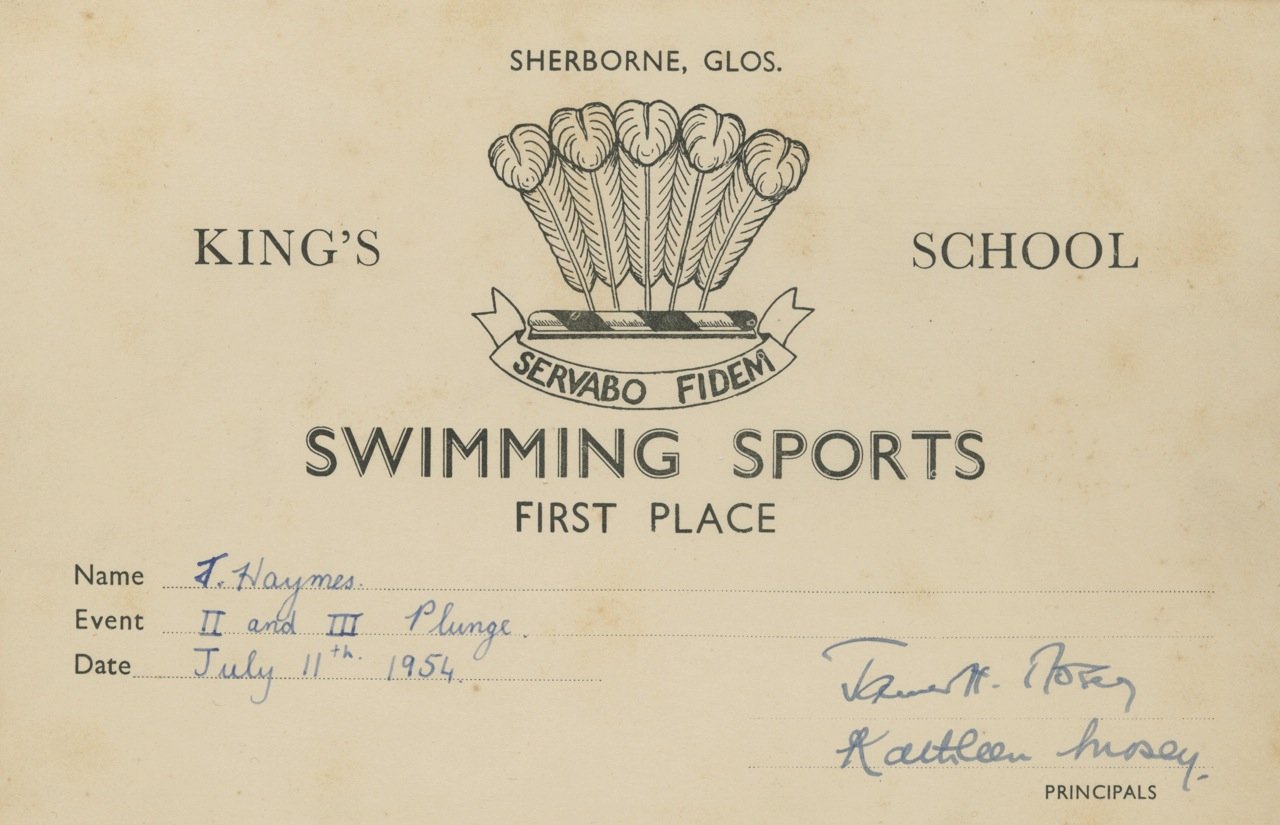 SHERBORNE, GLOS.
KING'S SCHOOL
SERVABO FIDEM
SWIMMING SPORTS
FIRST PLACE
Name J. Haymes.
Event II and III Plunge.
Date July 11th. 1954.
James H. Mosey
Kathleen Mosey.
PRINCIPALS